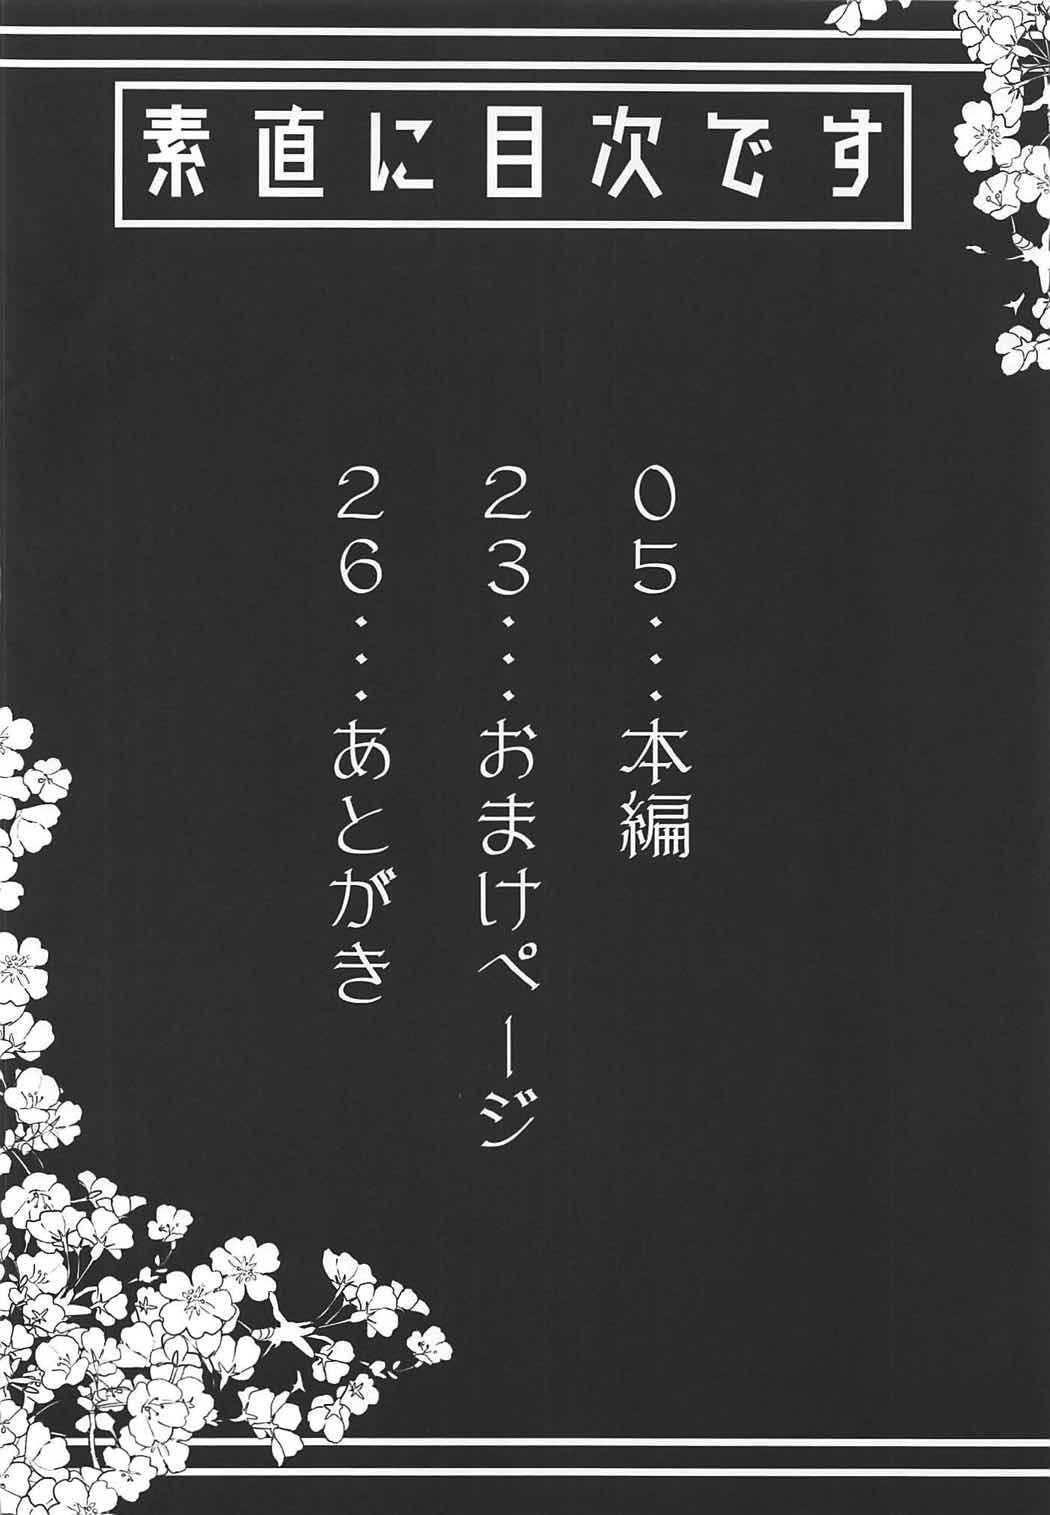 素直に目次です
05・・・本編
23・・・おまけページ
26・・・あとがき